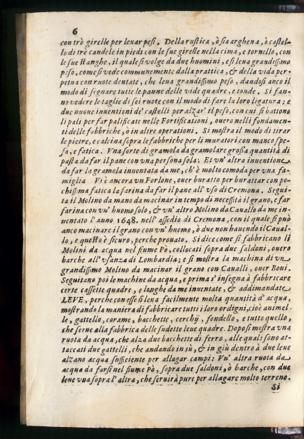 6
con trè girelle per leuar pesi. Della rustica, ò sia arghena, è castel-
lo di trè candele in piedi con le sue girelle nella cima, e tornello, con
le sue stanghe, il quale si volge da due huomini, e si leua grandissimo
peso, come si vede communemente dalla prattica, & della vida per-
petua con ruote dentate, che leua grandissimo peso, dandosi anco il
modo di segnare tutte le panne delle vide quadre, e tonde. Si fan-
no vedere le taglie di sei ruote con il modo di fare la loro ligatura; e
due nuoue inuentioni de' castelli per alzar' il peso, con cui si battono
li pali per far palificate nelle Fortificationi, ouero nelli fondamen-
ti delle fabbriche, ò in altre operationi. Si mostra il modo di tirar
le pietre, e calcina sopra le fabbriche per li muratori con manco spe-
sa, e fatica. Vna sorte di gramola da gramolare grossa quantità di
pasta da far il pane con vna persona sola. Et vn' altra inuentione
da far la gramola inuentata da me, ch' è molto comoda per vna fa-
miglia. Vi è ancora vn Forlone, ouer buratto per burattar con po-
chissima fatica la farina da far il pane all' vso di Cremona. Segui-
ta il Molino da mano da macinar in tempo di necessità il grano, e far
farina con vn' huomo solo, & vn' altro Molino da Cauallo da me in-
uentato l' anno 1648. nell' assedio di Cremona, con il quale si può
anco macinare il grano con vn' huomo, ò due non hauendo il Caual-
lo, e questo è sicuro, perche prouato. Si dice come si fabbricano li
Molini da acqua nel fiume Pò, collocati sopra due saldoni, outro
barche all' vsanza di Lombardia; e si mostra la machina di vn
grandissimo Molino da macinar il grano con Caualli, ouer Boui.
Seguitano poi le machine da acqua, e prima s' insegna à fabbricare
certe cassette quadre, e larghe da me inuentate, & addimandate
LEVE, perche con esse si leua facilmente molta quantità d' acqua,
mostrando la maniera di fabbricare tutti i loro ordigni, cioè animel-
le, gattello, corame, bacchette, cerchij, fondello, e tutto quello,
che serue alla fabbrica delle sudette leue quadre. Dopo si mostra vna
ruota da acqua, che alza due bacchette di ferro, alle quali sono at-
taccati due gattelli, che andando in sù, & in giù dentro à due leue
alzano acqua sufficiente per allagar campi; Vn' altra ruota da
acqua da farsi nel fiume Pò, sopra due saldoni, ò barche, con due
leue vna sopra l' altra, che seruirà pure per allagare molto terreno.
Si